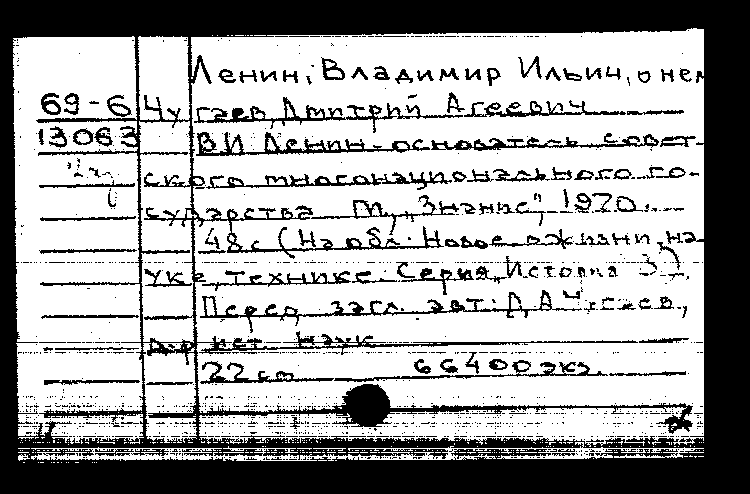 Ленин, Владимир Ильич, о нем
69-6 Чугаев, Дмитрий Агеевич
13063 В.И Ленин - основатель совет-
ского многонационального го-
сударства М., „Знание", 1970.
48с (На обл. Новое в жизни, на-
уке, технике. Серия „История" 3)
Перед загл. авт: Д.А Чугаев,
д-р ист. наук
22 см 66400 экз.